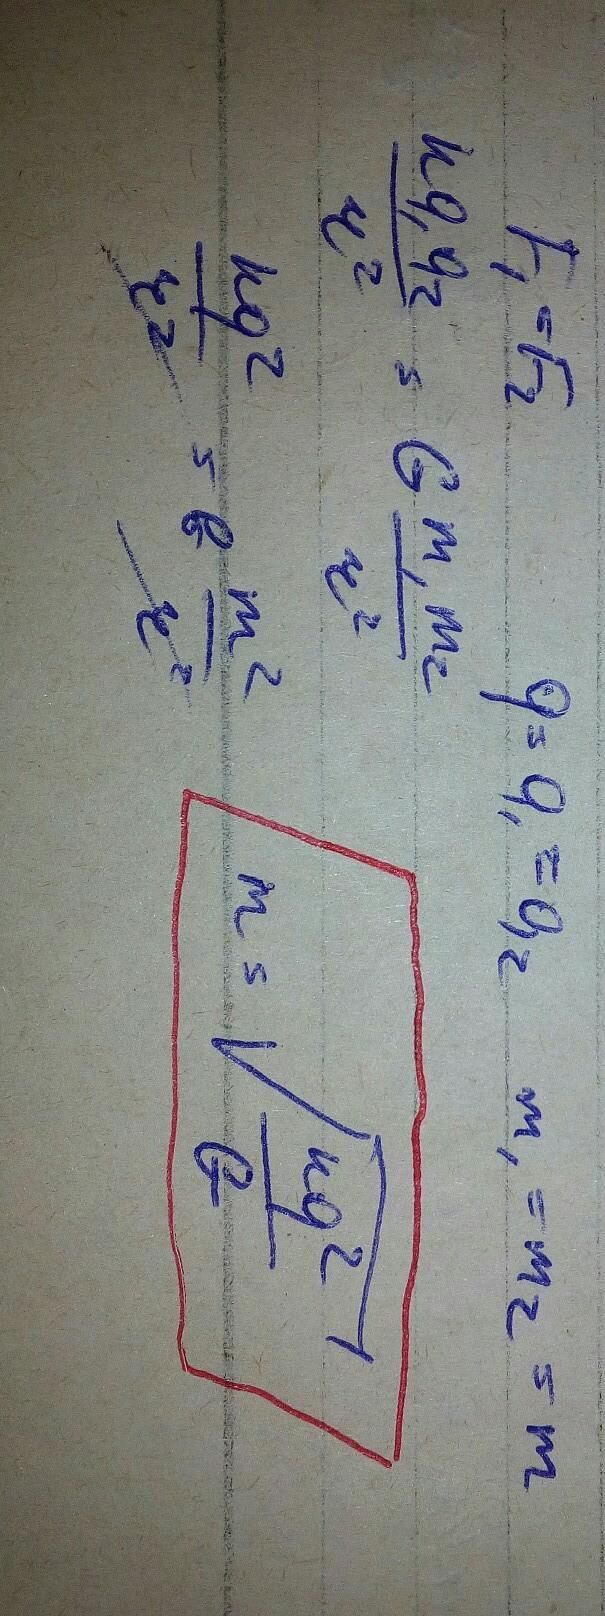 F₁ = F₂ q = q₁ = q₂ m₁ = m₂ = m
kq₁q₂/r² = G m₁m₂/r²
kq²/r² = G m²/r²
m = √(kq²/G)